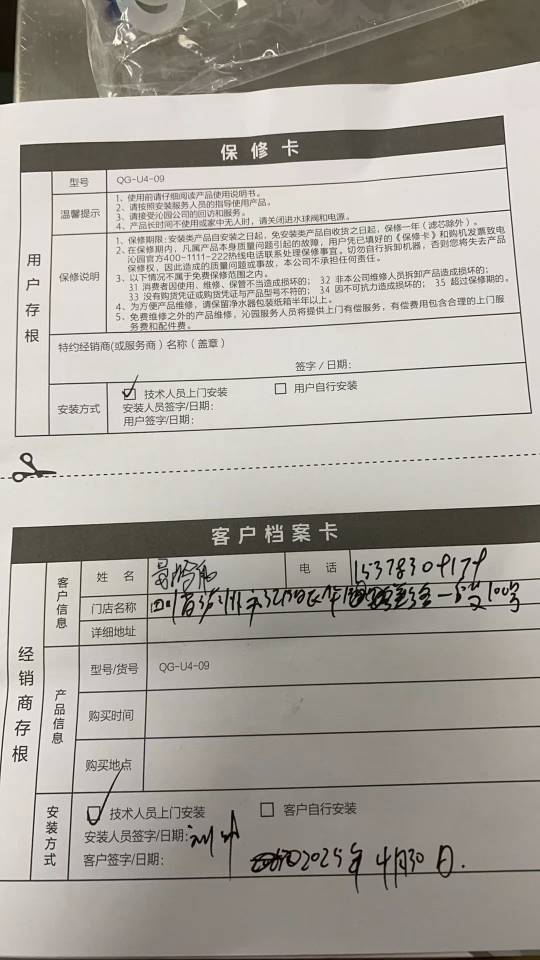 保修卡
用户存根
型号 QG-U4-09
温馨提示
1、使用前请仔细阅读产品使用说明书。
2、请按照安装服务人员的指导使用产品。
3、请接受沁园公司的回访和服务。
4、产品长时间不使用或家中无人时，请关闭进水球阀和电源。
保修说明
1、保修期限：安装类产品自安装之日起，免安装类产品自收货之日起，保修一年（滤芯除外）。
2、在保修期内，凡属产品本身质量问题引起的故障，用户凭已填好的《保修卡》和购机发票致电
沁园官方400-1111-222热线电话联系处理保修事宜。切勿自行拆卸机器，否则您将失去产品
保修权，因此造成的质量问题或事故，本公司不承担任何责任。
3、以下情况不属于免费保修范围之内。
3.1 消费者因使用、维修、保管不当造成损坏的； 3.2 非本公司维修人员拆卸产品造成损坏的；
3.3 没有购货凭证或购货凭证与产品型号不符的； 3.4 因不可抗力造成损坏的； 3.5 超过保修期的。
4、为方便产品维修，请保留净水器包装纸箱半年以上。
5、免费维修之外的产品维修，沁园服务人员将提供上门有偿服务，有偿费用包含合理的上门服
务费和配件费。
特约经销商(或服务商）名称（盖章）
签字 / 日期：
安装方式
技术人员上门安装 用户自行安装
安装人员签字/日期：
用户签字/日期：
客户档案卡
经销商存根
客户信息
姓 名 电 话
门店名称 四川省泸州市 一段100号
详细地址
产品信息
型号/货号 QG-U4-09
购买时间
购买地点
安装方式
技术人员上门安装 客户自行安装
安装人员签字/日期：
客户签字/日期： 2025年4月30日.